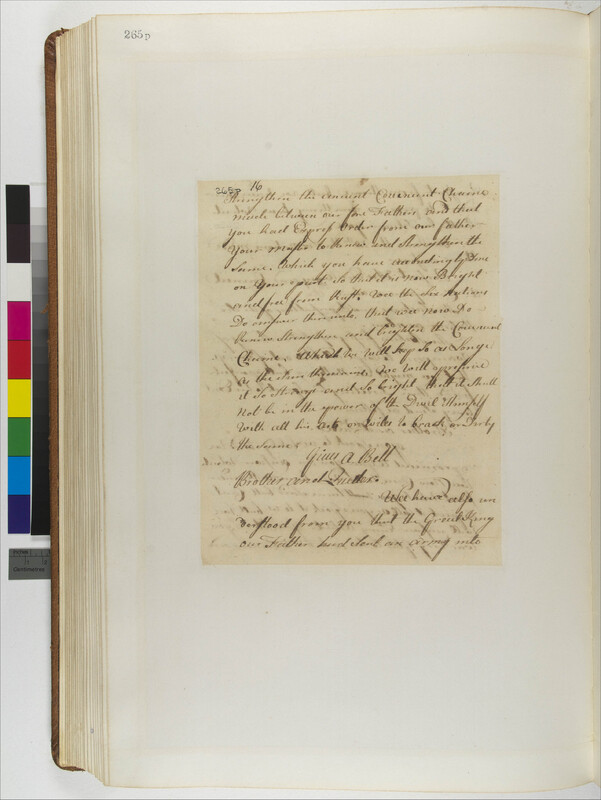 265 D
265D 16
Strengthen the ancient Covenant Chaine
made between our fore Fathers and that
you had Express order from our father
Your Master to Renew and Strengthen the
Same, Which you have accordingly Done
on Your part, So that it is now Bright
and free from Rust. Wee the Six Nations
Do on our
Renew Strengthen and brighten the Covenant
Chaine, Which we will keep So as Longe
as the Sun
it So Strong and So bright that it Shall
Not be in the power of the Devil Himself
With all his arts or wiles to break or Dirty
the Same.
Gives a Belt
Brother and Father.
Wee have also un
derstood from you that the Great King
our Father had Sent an army into
Centimetres